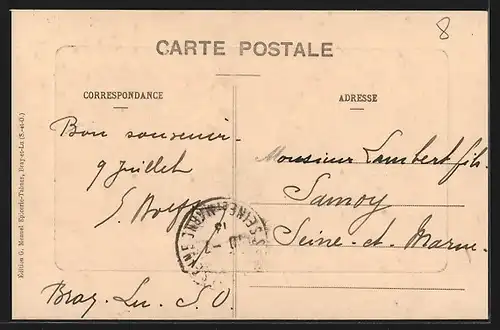 8
CARTE POSTALE
CORRESPONDANCE
ADRESSE
Bon souvenir
9 Juillet
Monsieur Lambert fils
Samoy
Seine-et-Marne
SEINE-ET-MARNE
Bray-Lu. S. O
Édition G. Mounal Epicerie-Tabacs, Bray-et-Lu (S.-et-O.)